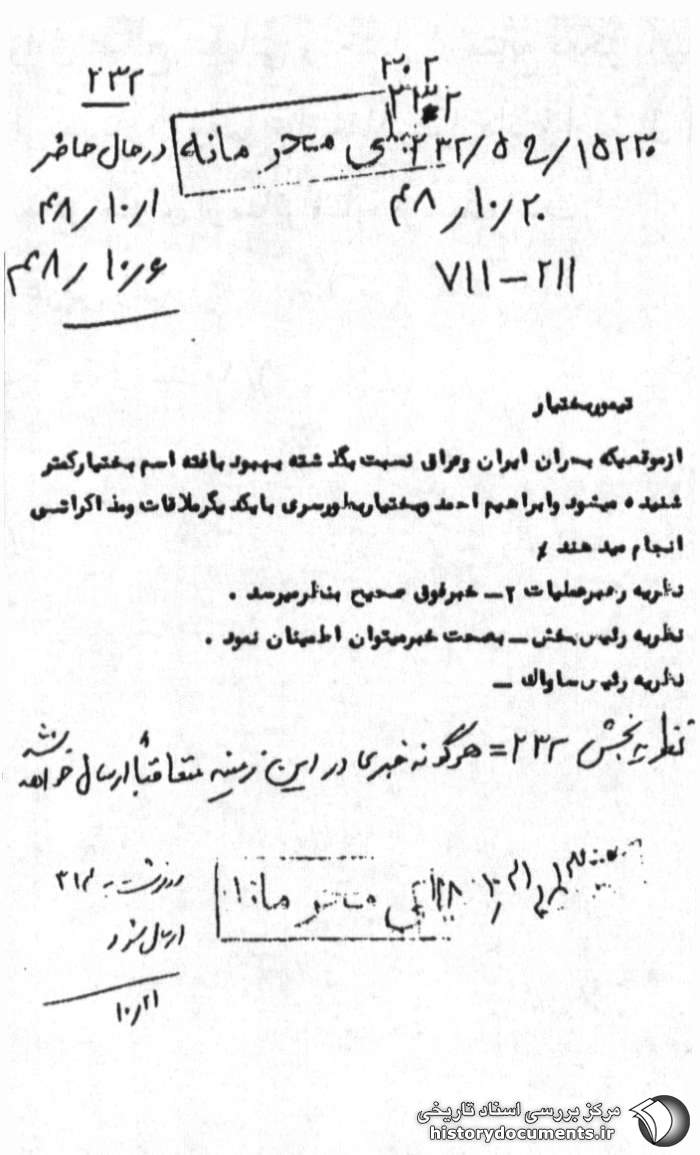 ۳۰۲
۲۳۲
۲۳۲
خیلی محرمانه
۱۵۲۳۰/ ۵ ه‍ ۲۳۲
در حال حاضر
۴۸/۱۰/۲۰
۴۸/۱۰/۱
۷۱۱-۲۱۱
۴۸/۱۰/۶
تیمور بختیار
ازموقعیکه بحران ایران وعراق نسبت بگذشته بهبود یافته اسم بختیار کمتر
شنیده میشود وابراهیم احمد وبختیار بطور سری با یکدیگر ملاقات ومذاکراتی
انجام میدهند
نظریه رهبرعملیات ۲ــ خبرفوق صحیح بنظر میرسد .
نظریه رئیس بخش ــ بصحت خبر میتوان اطمینان نمود .
نظریه رئیس ساواک ــ
نظریه بخش ۲۳۲= هرگونه خبری در این زمینه متعاقباً ارسال خواهد شد
خیلی محرمانه
رونوشت به ۳۱۲
ارسال شود
۱۰/۲۱
مرکز بررسی اسناد تاریخی
historydocuments.ir